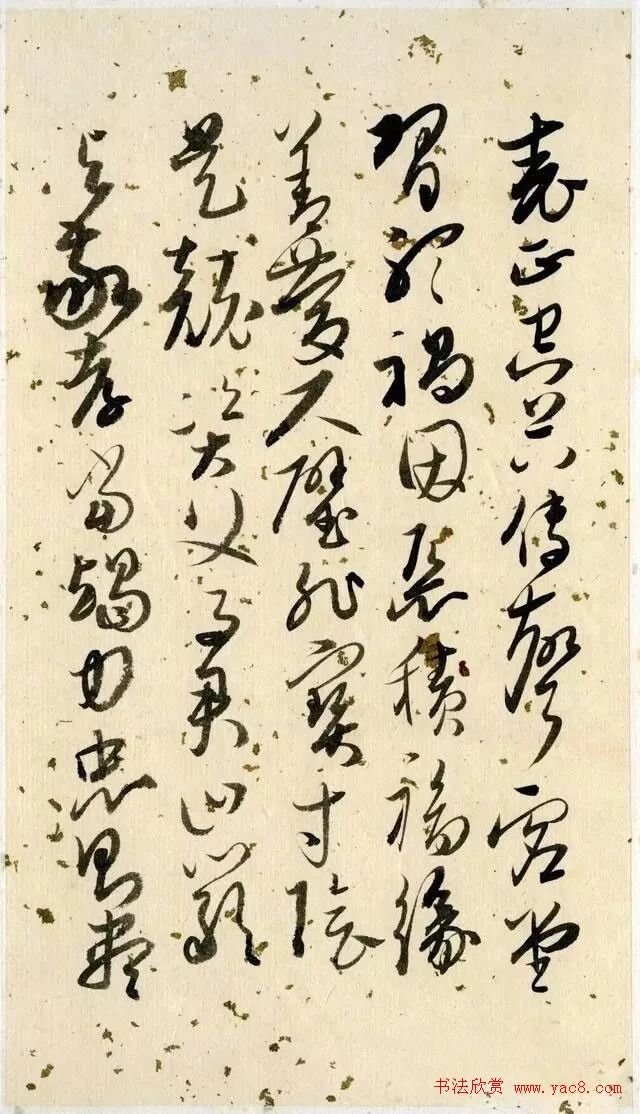 表正空谷传声虚堂
習聽禍因惡積福緣
善慶尺璧非寶寸陰
是競資父事君曰嚴
與敬孝當竭力忠則盡
书法欣赏 www.yac8.com